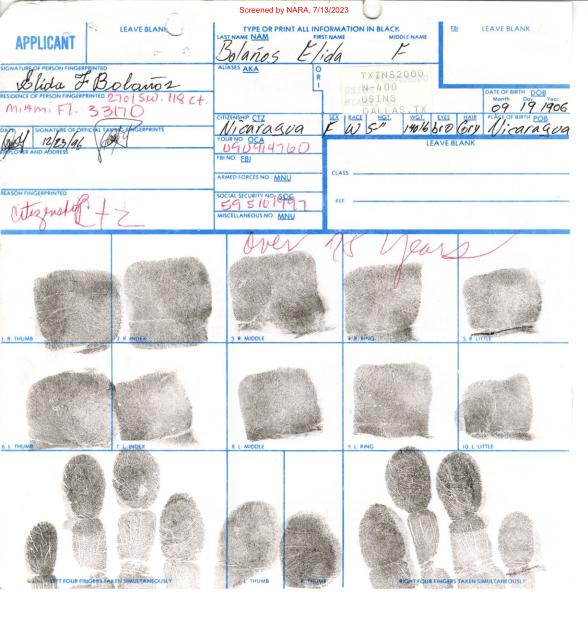 Screened by NARA, 7/13/2023
APPLICANT
LEAVE BLANK
TYPE OR PRINT ALL INFORMATION IN BLACK
LAST NAME NAM FIRST NAME MIDDLE NAME
Bolaños Elida F
FBI LEAVE BLANK
SIGNATURE OF PERSON FINGERPRINTED
Elida F Bolaños
ALIASES AKA
ORI
TXINS2000
N-400
USINS
DALLAS, TX
RESIDENCE OF PERSON FINGERPRINTED
2701 SW. 118 ct.
Miami Fl. 33170
DATE OF BIRTH DOB
Month Day Year
09 19 1906
DATE SIGNATURE OF OFFICIAL TAKING FINGERPRINTS
12/23/96
CITIZENSHIP CTZ
Nicaragua
SEX RACE HGT. WGT. EYES HAIR
F W 5" 140lb bro Gry
PLACE OF BIRTH POB
Nicaragua
EMPLOYER AND ADDRESS
YOUR NO. OCA
LEAVE BLANK
FBI NO. FBI
CLASS
ARMED FORCES NO. MNU
REASON FINGERPRINTED
Citizenship
SOCIAL SECURITY NO. SOC
REF.
MISCELLANEOUS NO. MNU
Over 75 Years
1. R. THUMB 2. R. INDEX 3. R. MIDDLE 4. R. RING 5. R. LITTLE
6. L. THUMB 7. L. INDEX 8. L. MIDDLE 9. L. RING 10. L. LITTLE
LEFT FOUR FINGERS TAKEN SIMULTANEOUSLY L. THUMB R. THUMB RIGHT FOUR FINGERS TAKEN SIMULTANEOUSLY